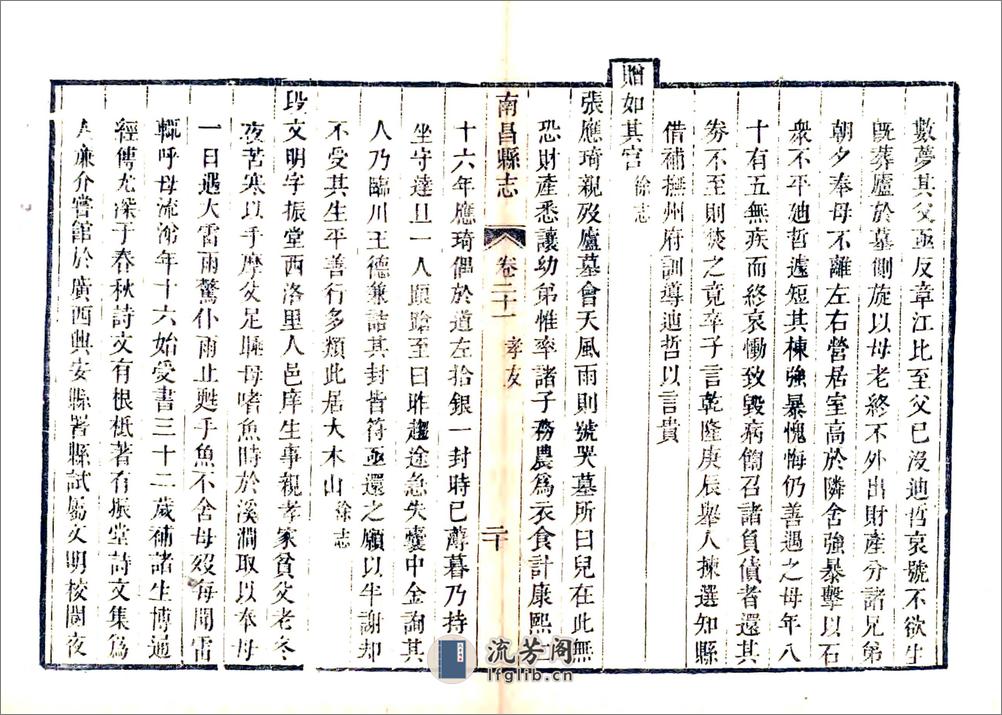 數夢其父亟反章江比至父已沒迪哲哀號不欲生
既葬廬於墓側旋以母老終不外出財產分諸兄弟
朝夕奉母不離左右營居室高於隣舍強暴擊以石
衆不平迪哲遽短其棟強暴愧悔仍善遇之母年八
十有五無疾而終哀慟致毀病簡召諸負債者還其
劵不至則焚之竟卒子言乾隆庚辰舉人揀選知縣
借補撫州府訓導迪哲以言貴
贈如其官 徐志
張應琦親歿廬墓會天風雨則號哭墓所曰兒在此無
恐財產悉讓幼弟惟率諸子務農爲衣食計康熙二
南昌縣志 卷二十一 孝友 二十
十六年應琦偶於道左拾銀一封時已薄暮乃持
坐守達旦一人踉蹌至曰昨趨途急失囊中金詢其
人乃臨川王德兼詰其封皆符亟還之願以半謝却
不受其生平善行多類此居大木山 徐志
段文明字振堂西洛里人邑庠生事親孝家貧父老冬
夜苦寒以手摩父足睡母嗜魚時於溪澗取以奉母
一日遇大雷雨驚仆雨止甦手魚不舍母歿每聞雷
輒呼母流涕年十六始受書三十二歲補諸生博通
經傳尤深于春秋詩文有根柢著有振堂詩文集爲
人廉介嘗館於廣西興安縣署縣試屬文明校閱夜
流芳阁
lfglib.cn